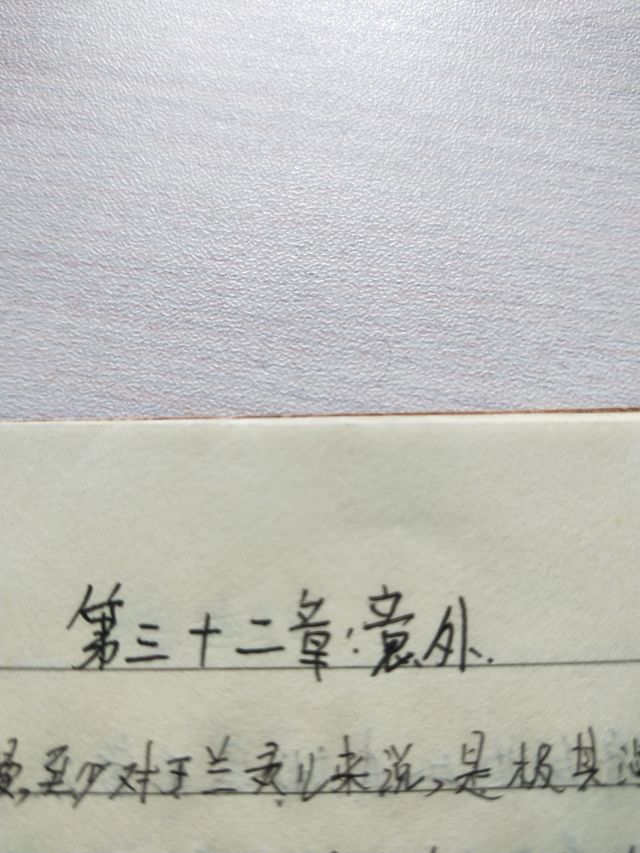 第三十二章：意外.
至少对于兰裹儿来说，是极其